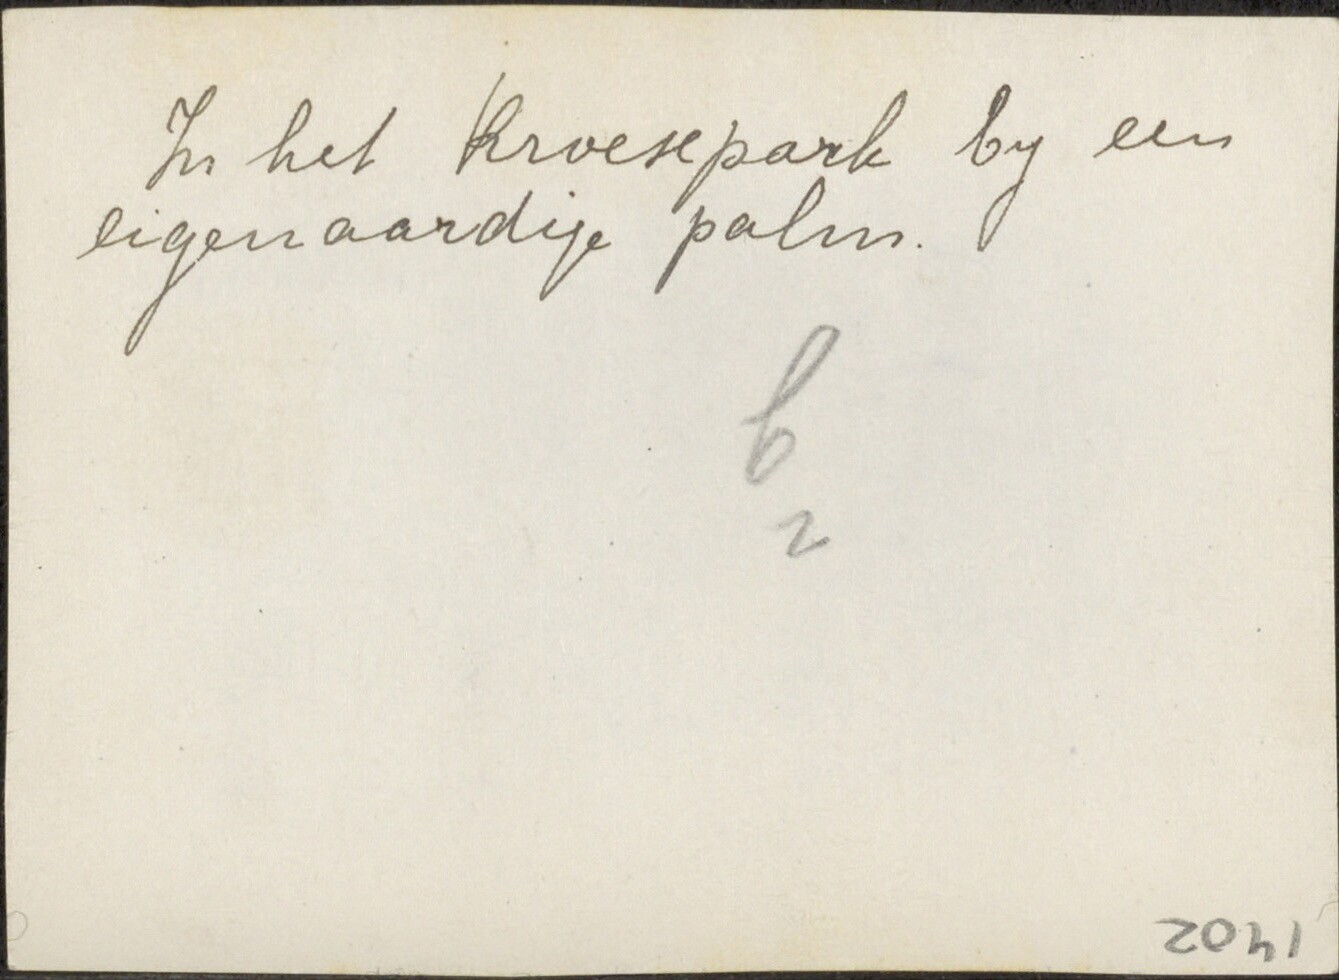 In het Kroesepark by een
eigenaardige palm.
b
2
1402